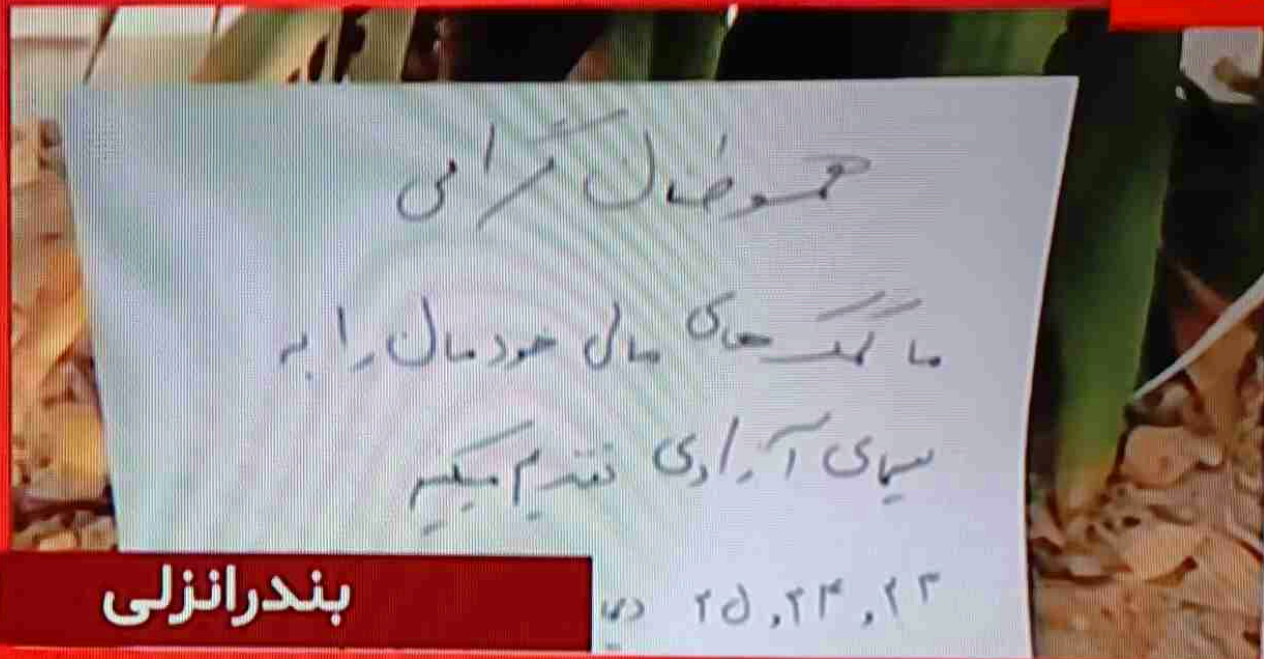 هموطنان گرامی
ما کمک های مالی خودمان را به
سیمای آزادی تقدیم میکنیم
۲۳, ۲۴, ۲۵
بندرانزلی